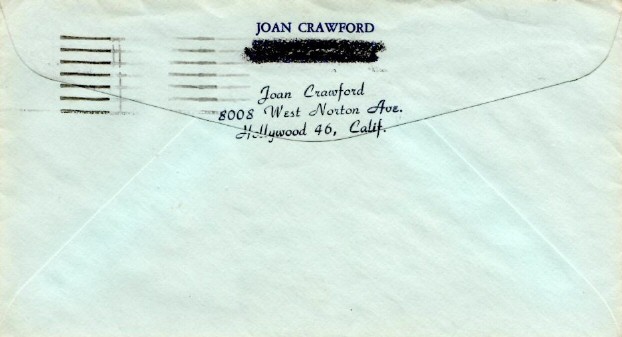 JOAN CRAWFORD
Joan Crawford
8008 West Norton Ave.
Hollywood 46, Calif.